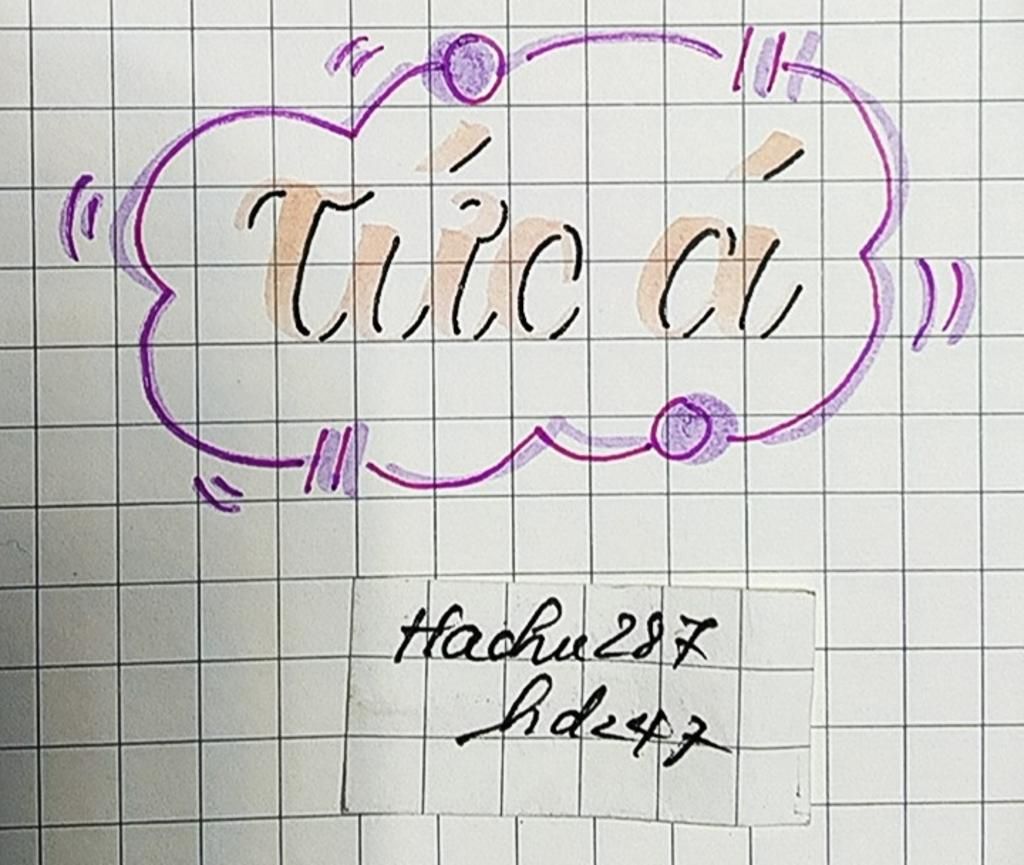 Tức á
Hachu287
hd247